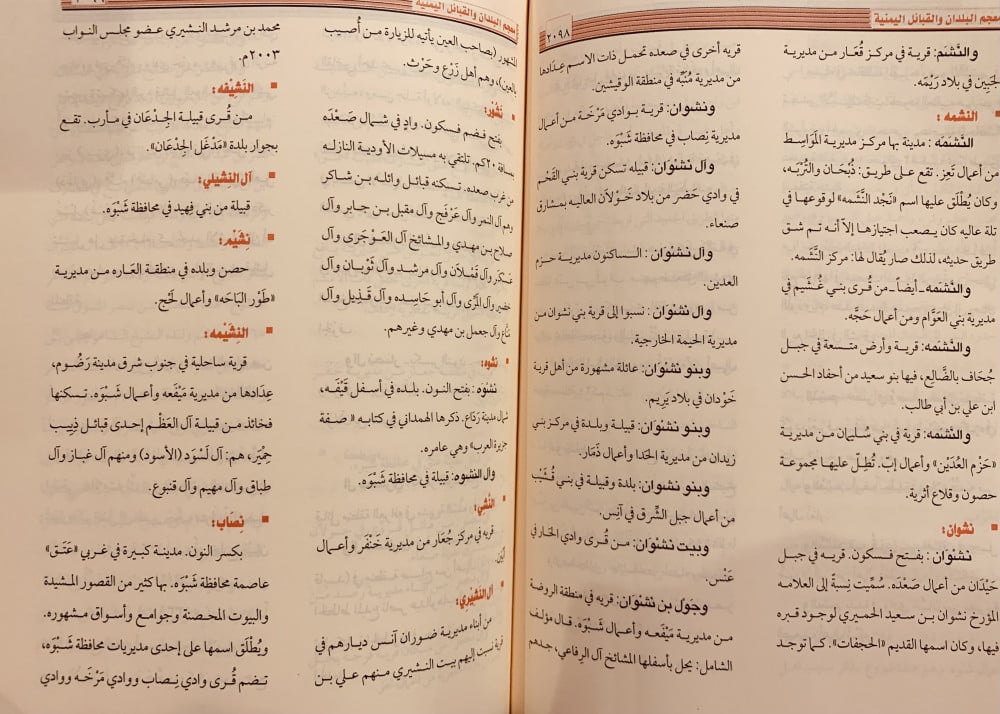 معجم البلدان والقبائل اليمنية
٢٠٩٨
والنَّشَم: قرية في مركز قُعَار من مديرية
الجَبِين في بلاد رَيْمَه.
النشمه :
النَّشمَه : مدينة بها مركز مديرية المَوَاسِط
من أعمال تَعِز. تقع على طريق: ذُبْحَان والتُّرْبَه،
وكان يُطْلَق عليها اسم «نَجْد النَّشَمه» لوقوعها في
تلة عاليه كان يصعب اجتيازها إلاّ أنه تم شق
طريق حديثه، لذلك صار يُقال لها: مركز النَّشَمه.
والنَّشمَه ـ أيضاً ـ من قُرى بني عُشَيم في
مديرية بني العَوَّام ومن أعمال حَجَّه.
والنَّشمَه: قرية وأرض متسعة في جبل
جُحَاف بالضَّالِع، فيها بنو سعيد من أحفاد الحسن
ابن علي بن أبي طالب.
والنَّشمه: قرية في بني سُليمان من مديرية
«حَزْم العُدَيْن» وأعمال إبّ. تُطِلّ عليها مجموعة
حصون وقلاع أثرية.
نشوان:
نَشْوَان : بفتح فسكون. قرية في جبل
حَيْدَان من أعمال صَعْدَه. سُمِّيت نِسبةً إلى العلامه
المؤرخ نشوان بن سعيد الحميري لوجود قبره
فيها، وكان اسمها القديم «الحجفات». كما توجد
قريه أخرى في صعده تحمل ذات الاسم عِدَادها
من مديرية مُنَبِّه في منطقة الوقيشين.
ونشوان: قرية بوادي مَرْخَة من أعمال
مديرية نِصَاب في محافظة شَبْوَه.
وآل نشْوَان: قبيله تسكن قرية بني الفَحْم
في وادي حَضر من بلاد خَوْلاَن العاليه بمشارق
صنعاء.
وآل نشْوَان : الساكنون مديرية حزم
العدين.
وآل نشْوَان : نسبوا إلى قرية بني نشوان من
مديرية الحيمة الخارجية.
وبنو نشْوَان: عائلة مشهورة من أهل قرية
خَوْدان في بلاد يَرِيم.
وبنو نشْوَان: قبيلة وبلدة في مركز بني
زيدان من مديرية الحَدا وأعمال ذَمَار.
وبنو نشوان: بلدة وقبيلة في بني قُشَيْب
من أعمال جبل الشَّرق في آنِس.
وبيت نشْوَان: من قُرى وادي الحَار في
عَنْس.
وجَوَل بن نشْوَان: قريه في منطقة الروضة
من مديرية مَيْفَعه وأعمال شَبْوَه. قال مؤلف
الشامل: يحل بأسفلها المشائخ آل الرفاعي، جدهم
معجم البلدان والقبائل اليمنية
المشهور (بصاحب العين يأتيه للزيارة من أُصيب
بالعين)، وهم أهل زَرْع وحَرْث.
نشُوْر:
بفتح فضم فسكون. وادٍ في شمال صَعْدَه
بمسافة ٢٠كم. تلتقي به مسيلات الأودية النازله
من غرب صعده. تسكنه قبائل وائله بن شاكر
وهم آل النمر وآل عَرْفَج وآل مقبل بن جابر وآل
صلاح بن مهدي والمشائخ آل العَوْجَرى وآل
وآل قَمْلاَن وآل مرشد وآل ثَوْبان وآل
وآل المُرّى وآل أبو حَاسِده وآل قَذِيل وآل
وآل جعمل بن مهدي وغيرهم.
نشوه:
نشْوَه : بفتح النون. بلده في أسفل قَيْفَه،
شمال مدينة رَدَاع. ذكرها الهمداني في كتابه «صفة
جزيرة العرب» وهي عامره.
وآل النشوه: قبيلة في محافظة شَبْوَه.
النُّشي:
قريه في مركز جُعَار من مديرية خَنْفَر وأعمال
أبْيَن.
آل النَّشيري:
من أبناء مديرية ضوران آنس ديارهم في
قرية نسبت إليهم بيت النشيري منهم علي بن
محمد بن مرشد النشيري عضو مجلس النواب
٢٠٠٣م.
النَشِيْفه:
من قُرى قبيلة الجِدْعَان في مأرب. تقع
بجوار بلدة «مَدْغَل الجِدْعَان».
آل النِشيلي:
قبيلة من بني فِهيد في محافظة شَبْوَه.
نِشيْم:
حصن وبلده في منطقة العَاره من مديرية
«طَوْر البَاحَه» وأعمال لَحْج.
النِشيْمه:
قريه ساحلية في جنوب شرق مدينة رَضُوم،
عِدَادها من مديرية مَيْفَعه وأعمال شَبْوَه. تسكنها
فخائذ من قبيلة آل العَظْم إحدى قبائل ذِييب
حِمْيَر، هم: آل لَسْوَد (الأسود) ومنهم آل غباز وآل
طباق وآل مهيم وآل قنبوع.
نِصَاب:
بكسر النون. مدينة كبيرة في غربي «عَتَق»
عاصمة محافظة شَبْوَه. بها كثير من القصور المشيدة
والبيوت المحصنة وجوامع وأسواق مشهوره.
ويُطْلَق اسمها على إحدى مديريات محافظة شَبْوَه،
تضم قُرى وادي نِصاب ووادي مَرْخَه ووادي